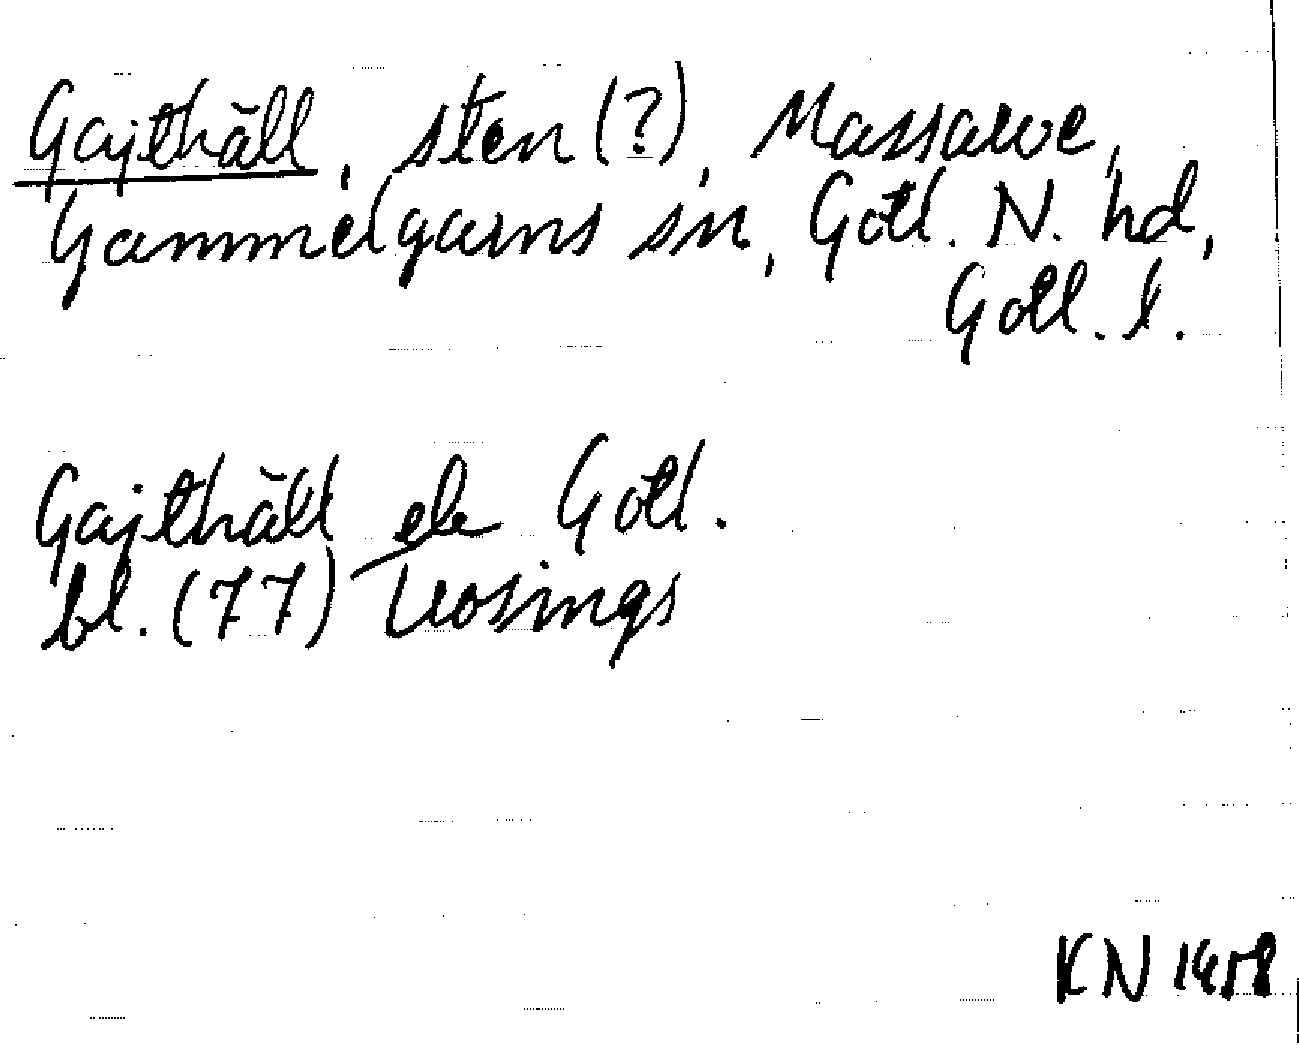 Gajthäll, sten (?), Massarve,
Gammelgarns sn, Gotl. N. hd,
Gotl. l.
Gajthäll ek Gotl.
bl. (77) Uosings
KN 1658